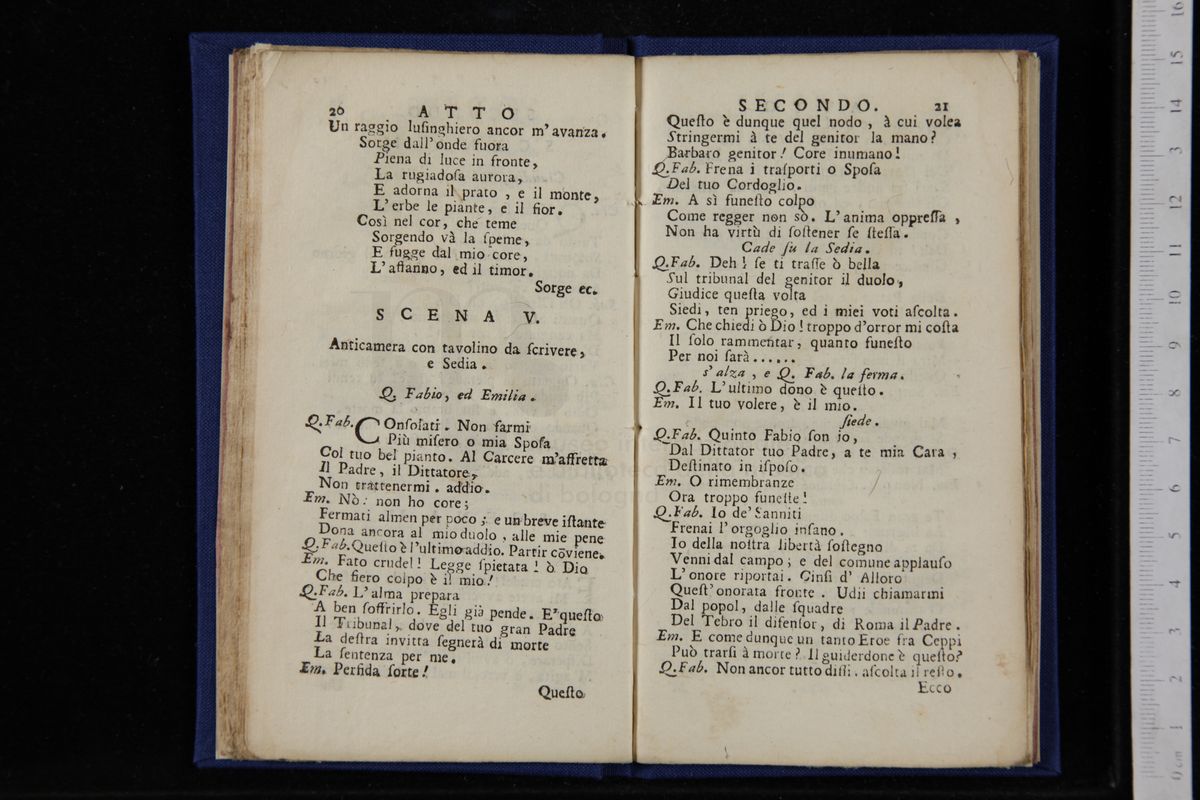 20 ATTO
Un raggio luſinghiero ancor m' avanza.
Sorge dall'onde fuora
Piena di luce in fronte,
La rugiadoſa aurora,
E adorna il prato , e il monte,
L' erbe le piante, e il fior.
Così nel cor, che teme
Sorgendo và la ſpeme,
E fugge dal mio core,
L' affanno, ed il timor.
Sorge ec.
SCENA V.
Anticamera con tavolino da ſcrivere,
e Sedia.
Q. Fabio, ed Emilia.
Q.Fab. COnſolati. Non farmi
Più miſero o mia Spoſa
Col tuo bel pianto. Al Carcere m'affretta
Il Padre, il Dittatore,
Non trattenermi. addio.
Em. Nò: non ho core;
Fermati almen per poco ; e un breve iſtante
Dona ancora al mio duolo , alle mie pene
Q.Fab. Queſto è l'ultimo addio. Partir cōviene.
Em. Fato crudel! Legge ſpietata ! ò Dio
Che fiero colpo è il mio!
Q.Fab. L' alma prepara
A ben ſoffrirlo. Egli già pende. E' queſto
Il Tribunal, dove del tuo gran Padre
La deſtra invitta ſegnerà di morte
La ſentenza per me.
Em. Perfida ſorte!
Queſto
SECONDO. 21
Queſto è dunque quel nodo , à cui volea
Stringermi à te del genitor la mano?
Barbaro genitor! Core inumano!
Q.Fab. Frena i traſporti o Spoſa
Del tuo Cordoglio.
Em. A sì funeſto colpo
Come regger non sò. L' anima oppreſſa ,
Non ha virtù di ſoſtener ſe ſteſſa.
Cade ſu la Sedia.
Q.Fab. Deh ! ſe ti traſſe ò bella
Sul tribunal del genitor il duolo,
Giudice queſta volta
Siedi, ten priego, ed i miei voti aſcolta.
Em. Che chiedi ò Dio ! troppo d'orror mi coſta
Il ſolo rammentar, quanto funeſto
Per noi ſarà......
s' alza , e Q. Fab. la ferma.
Q.Fab. L' ultimo dono è queſto.
Em. Il tuo volere, è il mio.
ſiede.
Q.Fab. Quinto Fabio ſon io,
Dal Dittator tuo Padre, a te mia Cara ,
Deſtinato in iſpoſo.
Em. O rimembranze
Ora troppo funeſte!
Q.Fab. Io de' Sanniti
Frenai l' orgoglio inſano.
Io della noſtra libertà ſoſtegno
Venni dal campo ; e del comune applauſo
L' onore riportai. Cinſi d' Alloro
Queſt' onorata fronte . Udii chiamarmi
Dal popol, dalle ſquadre
Del Tebro il difenſor, di Roma il Padre.
Em. E come dunque un tanto Eroe fra Ceppi
Può trarſi à morte? Il guiderdone è queſto?
Q.Fab. Non ancor tutto diſſi. aſcolta il reſto.
Ecco